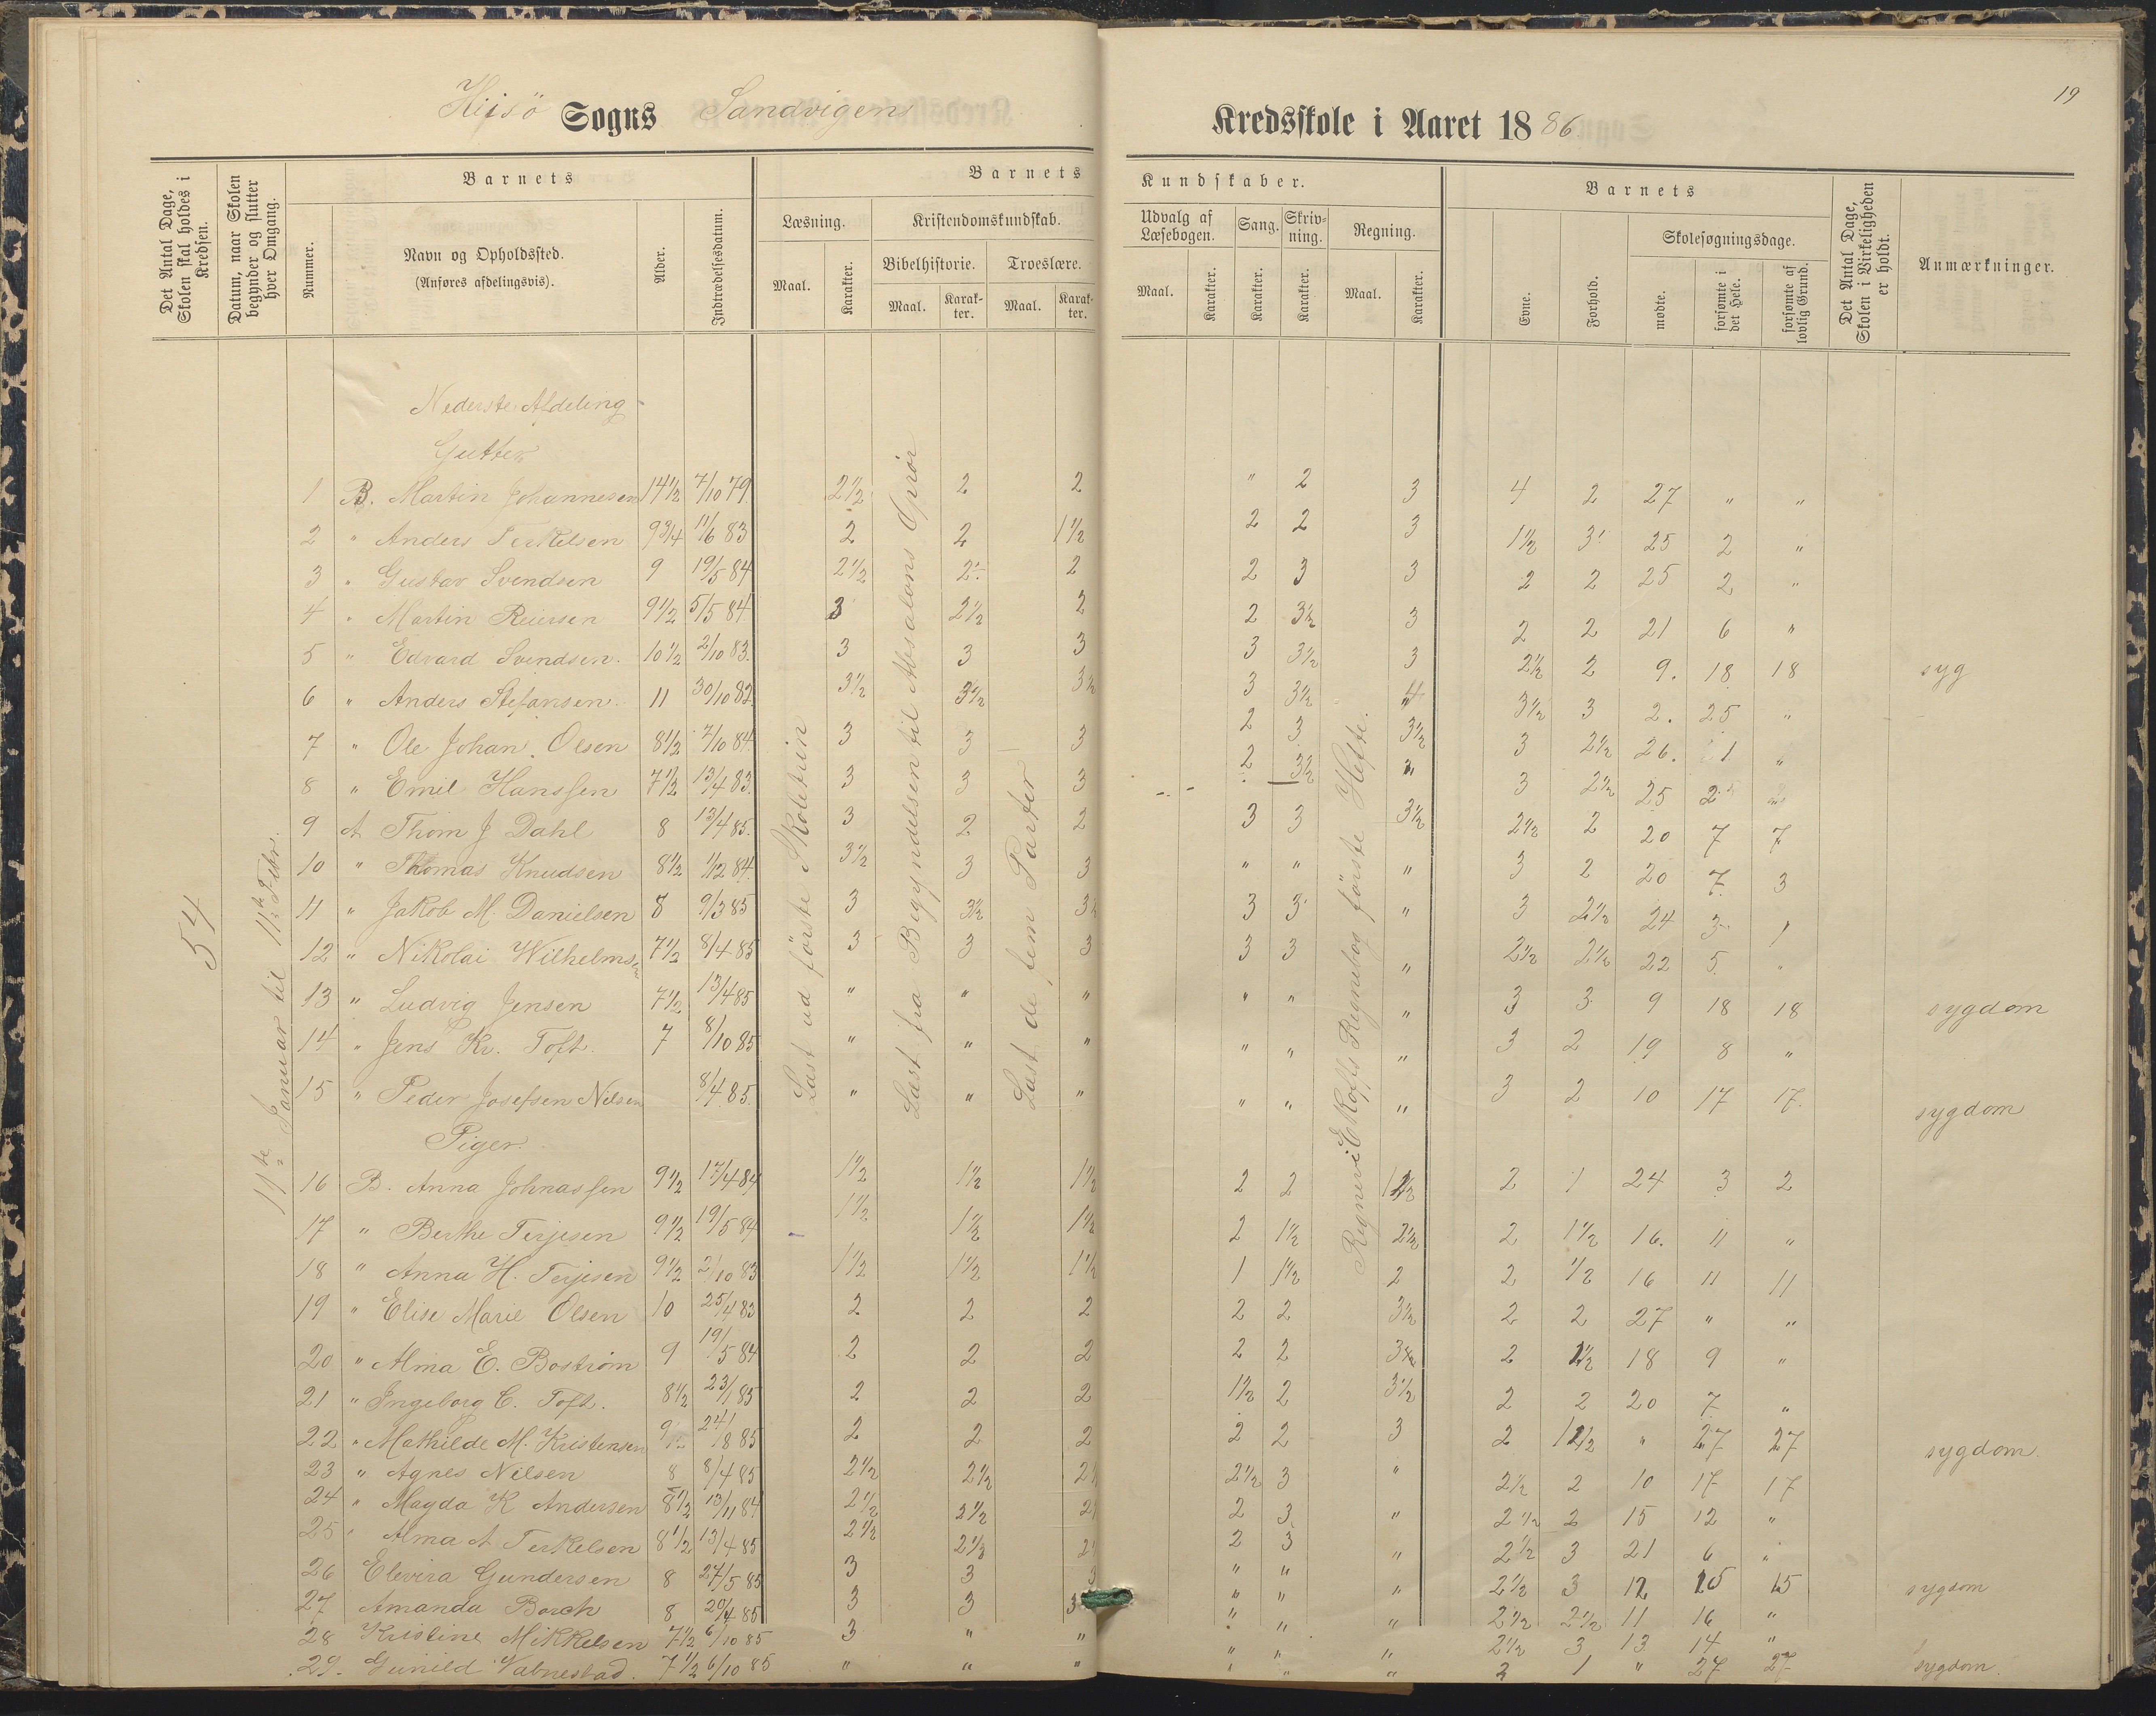 19
Hiisö Sogns Sandvigens Kredsskole i Aaret 1886
Det Antal Dage, Skolen skal holdes i Kredsen.
Datum, naar Skolen begynder og slutter hver Omgang.
Barnets
Nummer.
Navn og Opholdssted.
(Anføres afdelingsvis).
Alder.
Indtrædelsesdatum.
Barnets Kundskaber.
Læsning.
Maal.
Karakter.
Kristendomskundskab.
Bibelhistorie.
Maal.
Karakter.
Troeslære.
Maal.
Karakter.
Udvalg af Læsebogen.
Maal.
Karakter.
Sang.
Karakter.
Skrivning.
Karakter.
Regning.
Maal.
Karakter.
Barnets
Evne.
Forhold.
Skolesøgningsdage.
mødte.
forsømte i det Hele.
forsømte af lovlig Grund.
Det Antal Dage, Skolen i Virkeligheden er holdt.
Anmærkninger.
54
11te Januar til 11te Febr.
Læst ud förste Skoletrin
Læst fra Begyndelsen til Absalons Oprör
Læst de fem Parter
Regnet i E Koffs Regnebog förste Hefte.
Nederste Afdeling
Gutter
1 B. Martin Johannesen 14 1/2 7/10 79 2 1/2 2 2 " 2 3 4 2 27 " "
2 " Anders Terkelsen 9 3/4 11/6 83 2 2 1 1/2 2 2 3 1 1/2 3 25 2 "
3 " Gustav Svendsen 9 19/5 84 2 1/2 2 2 2 3 3 2 2 25 2 "
4 " Martin Reiersen 9 1/2 5/5 84 3 2 1/2 2 2 3 1/2 3 2 2 21 6 "
5 " Edvard Svendsen. 10 1/2 2/10 83. 3 3 3 3 3 1/2 3 2 1/2 2 9. 18 18 syg
6 " Anders Stefansen. 11 30/10 82. 3 1/2 3 1/2 3 1/2 3 3 1/2 4 3 1/2 3 2. 25 "
7 " Ole Johan Olsen 8 1/2 7/10 84. 3 3 3 2 3 3 1/2 3 2 1/2 26. 1 "
8 " Emil Hanssen 7 1/2 13/4 83. 3 3 3 2 3 1/2 3 3 2 1/2 25 2
9 A Thom J Dahl 8 13/4 85. 3 2 2 3 3 3 1/2 2 1/2 2 20 7 7
10 " Thomas Knudsen 8 1/2 1/12 84. 3 1/2 3 3 " " " 3 2 20 7. 3
11 " Jakob M. Danielsen 8 9/3 85 3 3 1/2 3 1/2 3 3 " 3 2 1/2 24 3 1
12 " Nikolai Wilhelms 7 1/2 8/4 85 3 3 3 3 3 " 2 1/2 2 1/2 22 5. "
13 " Ludvig Jensen 7 1/2 13/4 85 " " " " " " 3 3 9 18 18 sygdom
14 " Jens Kr. Toft. 7 8/10 85 " " " " " " 3 2 19 8 "
15 " Peder Josefsen Nilsen 8/4 85. " " " " " " 3 2 10 17 17. sygdom
Piger.
16 B. Anna Johnassen 9 1/2 17/4 84 1 1/2 1 1/2 1 1/2 2 2 1 1/2 2 1 24 3 2
17 " Berthe Terjesen 9 1/2 19/5 84 1 1/2 1 1/2 1 1/2 2 1 1/2 2 1/2 2 1 1/2 16. 11 "
18 " Anna H. Terjesen 9 1/2 2/10 83 1 1/2 1 1/2 1 1/2 1 1 1/2 2 2 1/2 16 11 11
19 " Elise Marie Olsen 10 25/4 83 2 2 2 2 2 3 1/2 2 2 27 " "
20 " Alma E. Bostrøm 9 19/5 84 2 2 2 2 2 3 1/2 2 1 1/2 18 9 "
21 " Ingeborg C. Toft. 8 1/2 23/1 85 2 2 2 1 1/2 2 3 1/2 2 2 20 7 "
22 " Mathilde M. Kristensen 24/8 85 2 2 2 2 2 3 2 1 1/2 " 27 27 sygdom.
23 " Agnes Nilsen 8 8/4 85 2 1/2 2 1/2 2 1/2 2 1/2 3 " 2 1/2 2 10 17 17
24 " Magda K Andersen 8 1/2 13/11 84 2 1/2 2 1/2 2 1/2 2 3 " 2 1/2 2 15 12 "
25 " Alma A Terkelsen 8 1/2 13/4 85 2 1/2 2 1/2 2 1/2 2 3 " 2 1/2 3 21 6 "
26 Elevira Gundersen 8 27/5 85 3 3 3 " " " 2 1/2 3 12 15 15 sygdom
27 Amanda Borch 8 20/4 85 3 3 3 " " " 2 1/2 2 1/2 11 16 "
28 Kristine Mikkelsen 7 1/2 6/10 85 3 " " " " " 2 1/2 3 13 14 "
29. Gunild Vabnestad. 7 1/2 6/10 85 " " " " " " 2 1 " 27 27 sygdom.